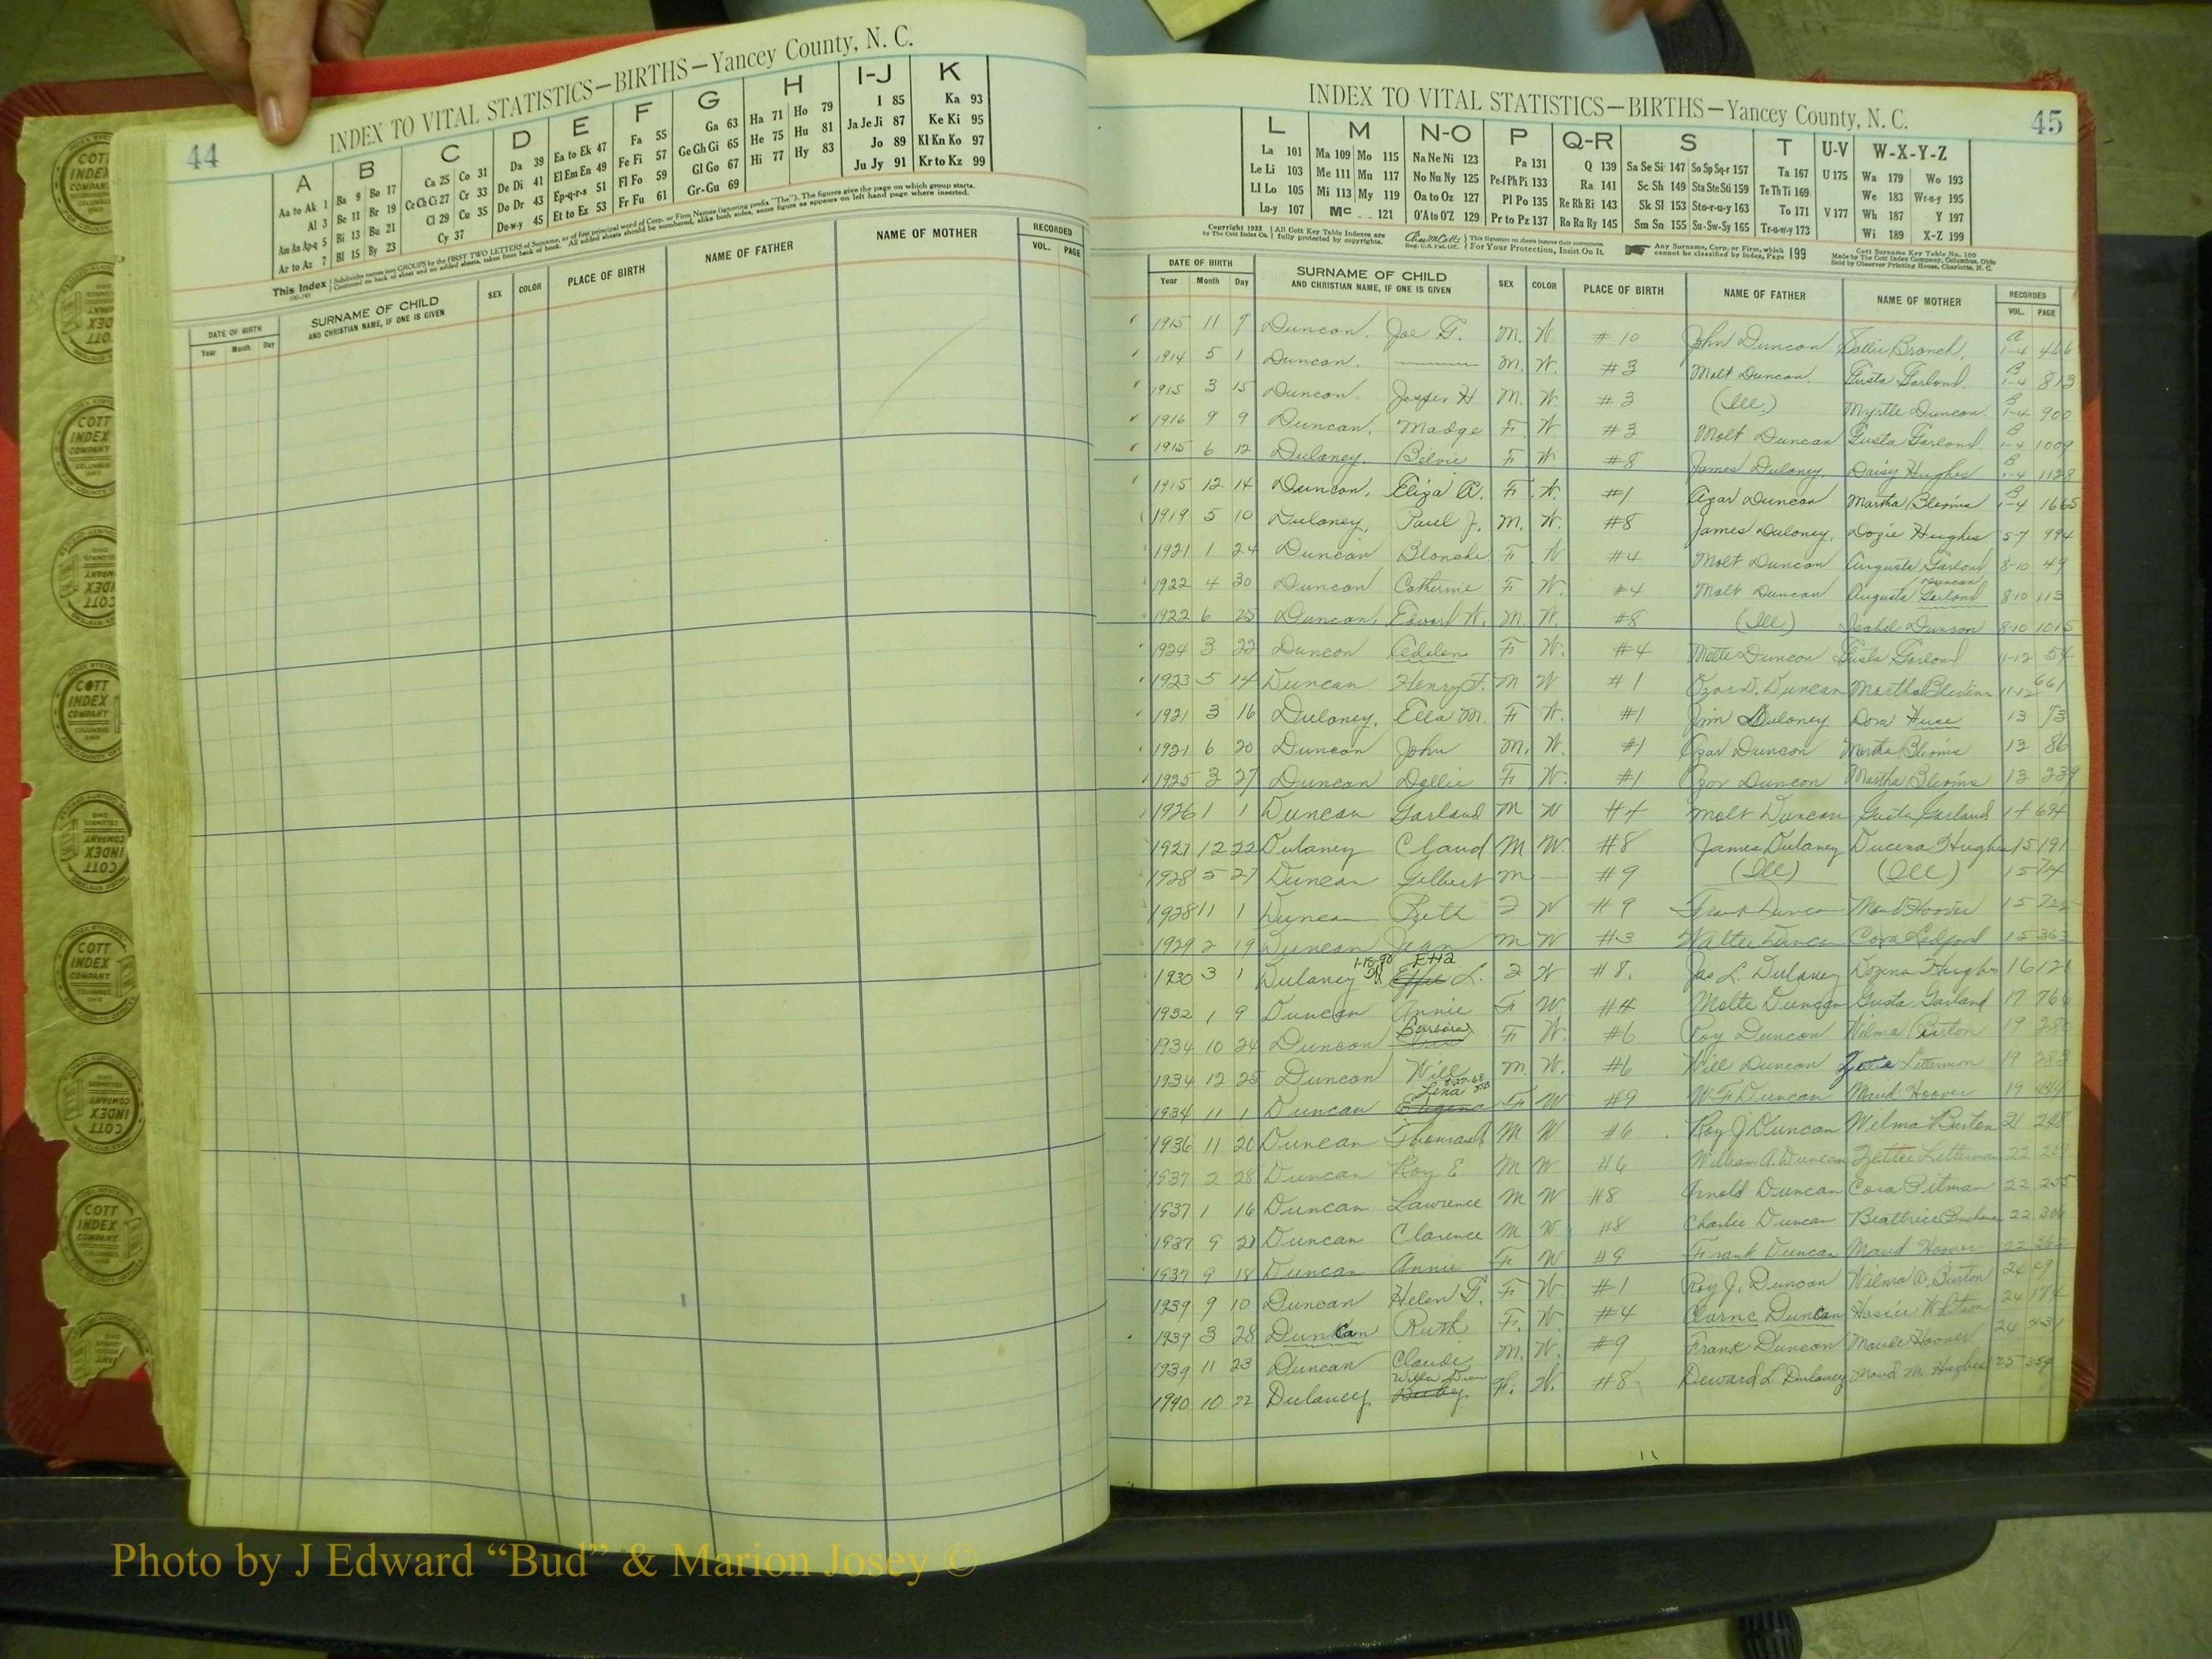 44
INDEX TO VITAL STATISTICS—BIRTHS—Yancey County, N. C.
A B C D E F G H I-J K
Aa to Ak 1 Ba 9 Bo 17 Ca 25 Co 31 Da 39 Ea to Ek 47 Fa 55 Ga 63 Ha 71 Ho 79 I 85 Ka 93
Al 3 Be 11 Br 19 Ce Ch Ci 27 Cr 33 De Di 41 El Em En 49 Fe Fi 57 Ge Gh Gi 65 He 75 Hu 81 Ja Je Ji 87 Ke Ki 95
Am An Ap-q 5 Bi 13 Bu 21 Cl 29 Cu 35 Do Dr 43 Ep-q-r-s 51 Fl Fo 59 Gl Go 67 Hi 77 Hy 83 Jo 89 Kl Kn Ko 97
Ar to Az 7 Bl 15 By 23 Cy 37 Du-w-y 45 Et to Ez 53 Fr Fu 61 Gr-Gu 69 Ju Jy 91 Kr to Kz 99
This Index Subdivides names into GROUPS by the FIRST TWO LETTERS of Surname, or of first principal word of Corp. or Firm Names (ignoring prefix "The"). The figures give the page on which group starts.
Continued on back of sheet and on added sheets, taken from back of book. All added sheets should be numbered, alike both sides, same figure as appears on left hand page where inserted.
DATE OF BIRTH SURNAME OF CHILD SEX COLOR PLACE OF BIRTH NAME OF FATHER NAME OF MOTHER RECORDED
Year Month Day AND CHRISTIAN NAME, IF ONE IS GIVEN VOL. PAGE
COTT INDEX COMPANY
INDEX TO VITAL STATISTICS—BIRTHS—Yancey County, N. C.
45
L M N-O P Q-R S T U-V W-X-Y-Z
La 101 Ma 109 Mo 115 Na Ne Ni 123 Pa 131 Q 139 Sa Se Si 147 So Sp Sq-r 157 Ta 167 U 175 Wa 179 Wo 193
Le Li 103 Me 111 Mu 117 No Nu Ny 125 Pe-f Ph Pi 133 Ra 141 Sc Sh 149 Sta Ste Sti 159 Te Th Ti 169 We 183 Wr-u-y 195
Ll Lo 105 Mi 113 My 119 Oa to Oz 127 Pl Po 135 Re Rh Ri 143 Sk Sl 153 Sto-r-u-y 163 To 171 V 177 Wh 187 Y 197
Lu-y 107 Mc 121 O'A to O'Z 129 Pr to Pz 137 Ro Ru Ry 145 Sm Sn 155 Su-Sw-Sy 165 Tr-u-w-y 173 Wi 189 X-Z 199
Copyright 1932 by The Cott Index Co. All Cott Key Table Indexes are fully protected by copyrights. This signature on sheets insures their correctness. For Your Protection, Insist On It. Any Surname, Corp. or Firm, which cannot be classified by Index, Page 199
Cott Surname Key Table No. 100 Made by The Cott Index Company, Columbus, Ohio Sold by Observer Printing House, Charlotte, N. C.
DATE OF BIRTH SURNAME OF CHILD SEX COLOR PLACE OF BIRTH NAME OF FATHER NAME OF MOTHER RECORDED
Year Month Day AND CHRISTIAN NAME, IF ONE IS GIVEN VOL. PAGE
1915 11 7 Duncan, Joe G. M. W. #10 John Duncan Sallie Branch A 1-4 466
1914 5 1 Duncan. M. W. #3 Molt Duncan. Gusta Garland. B 1-4 813
1915 3 15 Duncan. H M. W. #3 (Ill.) Myrtle Duncan. B 1-4 900
1916 9 9 Duncan, Madge F. W. #3 Molt Duncan Gusta Garland. B 1-4 1009
1915 6 12 Dulaney. Belvie F W #8 James Dulaney. Daisy Hughes B 1-4 1128
1915 12 14 Duncan, Eliza A. F. W. #1 Azar Duncan Martha B 1-4 1665
1919 5 10 Dulaney, Paul J. M. W. #8 James Dulaney, Dozie Hughes 5-7 994
1921 1 24 Duncan Blanche F W #4 Molt Duncan Augusta Garland 8-10 49
1922 4 30 Duncan Catherine F W. #4 Molt Duncan Augusta Garland Duncan 8-10 113
1922 6 25 Duncan, Edward W. M. W. #8 (Ill) Isabel 8-10 1015
1924 3 22 Duncan Adelen F W. #4 Molte Duncan Gusta Garland 11-12 54
1923 5 14 Duncan Henry F. M W #1 Ozar D. Duncan Martha Bledvins 11-12 661
1921 3 16 Dulaney, Ella M. F W. #1 Jim Dulaney Dora Huse 13 73
1921 6 20 Duncan John M. W. #1 Ozar Duncan Martha 13 86
1925 3 27 Duncan Dollie F. W. #1 Ozar Duncan Martha 13 239
1926 1 1 Duncan Garland M W #4 Molt Duncan Gusta Garland 14 694
1927 12 22 Dulaney Claud M W #8 James Dulaney Ducena Hughes 15 191
1928 5 27 Duncan Gilbert M — #9 (Ill) (Ill) 15 714
1928 11 1 Duncan Ruth F W #9 Frank Duncan Maud Hoover 15 722
1929 2 19 Duncan Jean M W #3 Walter Duncan Cora Ledford 15 363
1930 3 1 Dulaney 1-18-90 Etta Effie L. F W #8. Jas L. Dulaney Dozena Hughes 16 121
1932 1 9 Duncan Annie F W #4 Molte Duncan Gusta Garland 17 766
1934 10 24 Duncan Barbara F W. #6 Roy Duncan Wilma Burton 19 280
1934 12 25 Duncan Will M. W. #6 Will Duncan Letterman 19 283
1934 11 1 Duncan Lena Eugena F W #9 W F Duncan Maud Hoover 19 444
1936 11 20 Duncan Thomas M W #6 Roy J Duncan Wilma Burton 21 248
1937 2 28 Duncan Roy E M W #6 William A. Duncan Zettie Letterman 22 209
1937 1 16 Duncan Lawrence M W #8 Arnold Duncan Cora Pitman 22 255
1937 9 21 Duncan Clarence M W #8 Charlie Duncan Beattrice 22 306
1937 9 18 Duncan Annie F W #9 Frank Duncan Maud Hoover 22 362
1939 9 10 Duncan Helen G. F W #1 Roy J. Duncan Wilma D. Burton 24 49
1939 3 28 Duncan Ruth F. W. #4 Clarnc Duncan Hasie Whitson 24 174
1939 11 23 Duncan Claude M. W. #9 Frank Duncan Maude Hoover 24
1940 10 22 Dulaney Willa Baby F. W. #8 Deward L Dulaney Maud M. Hughes 25 354
Photo by J Edward “Bud” & Marion Josey ©